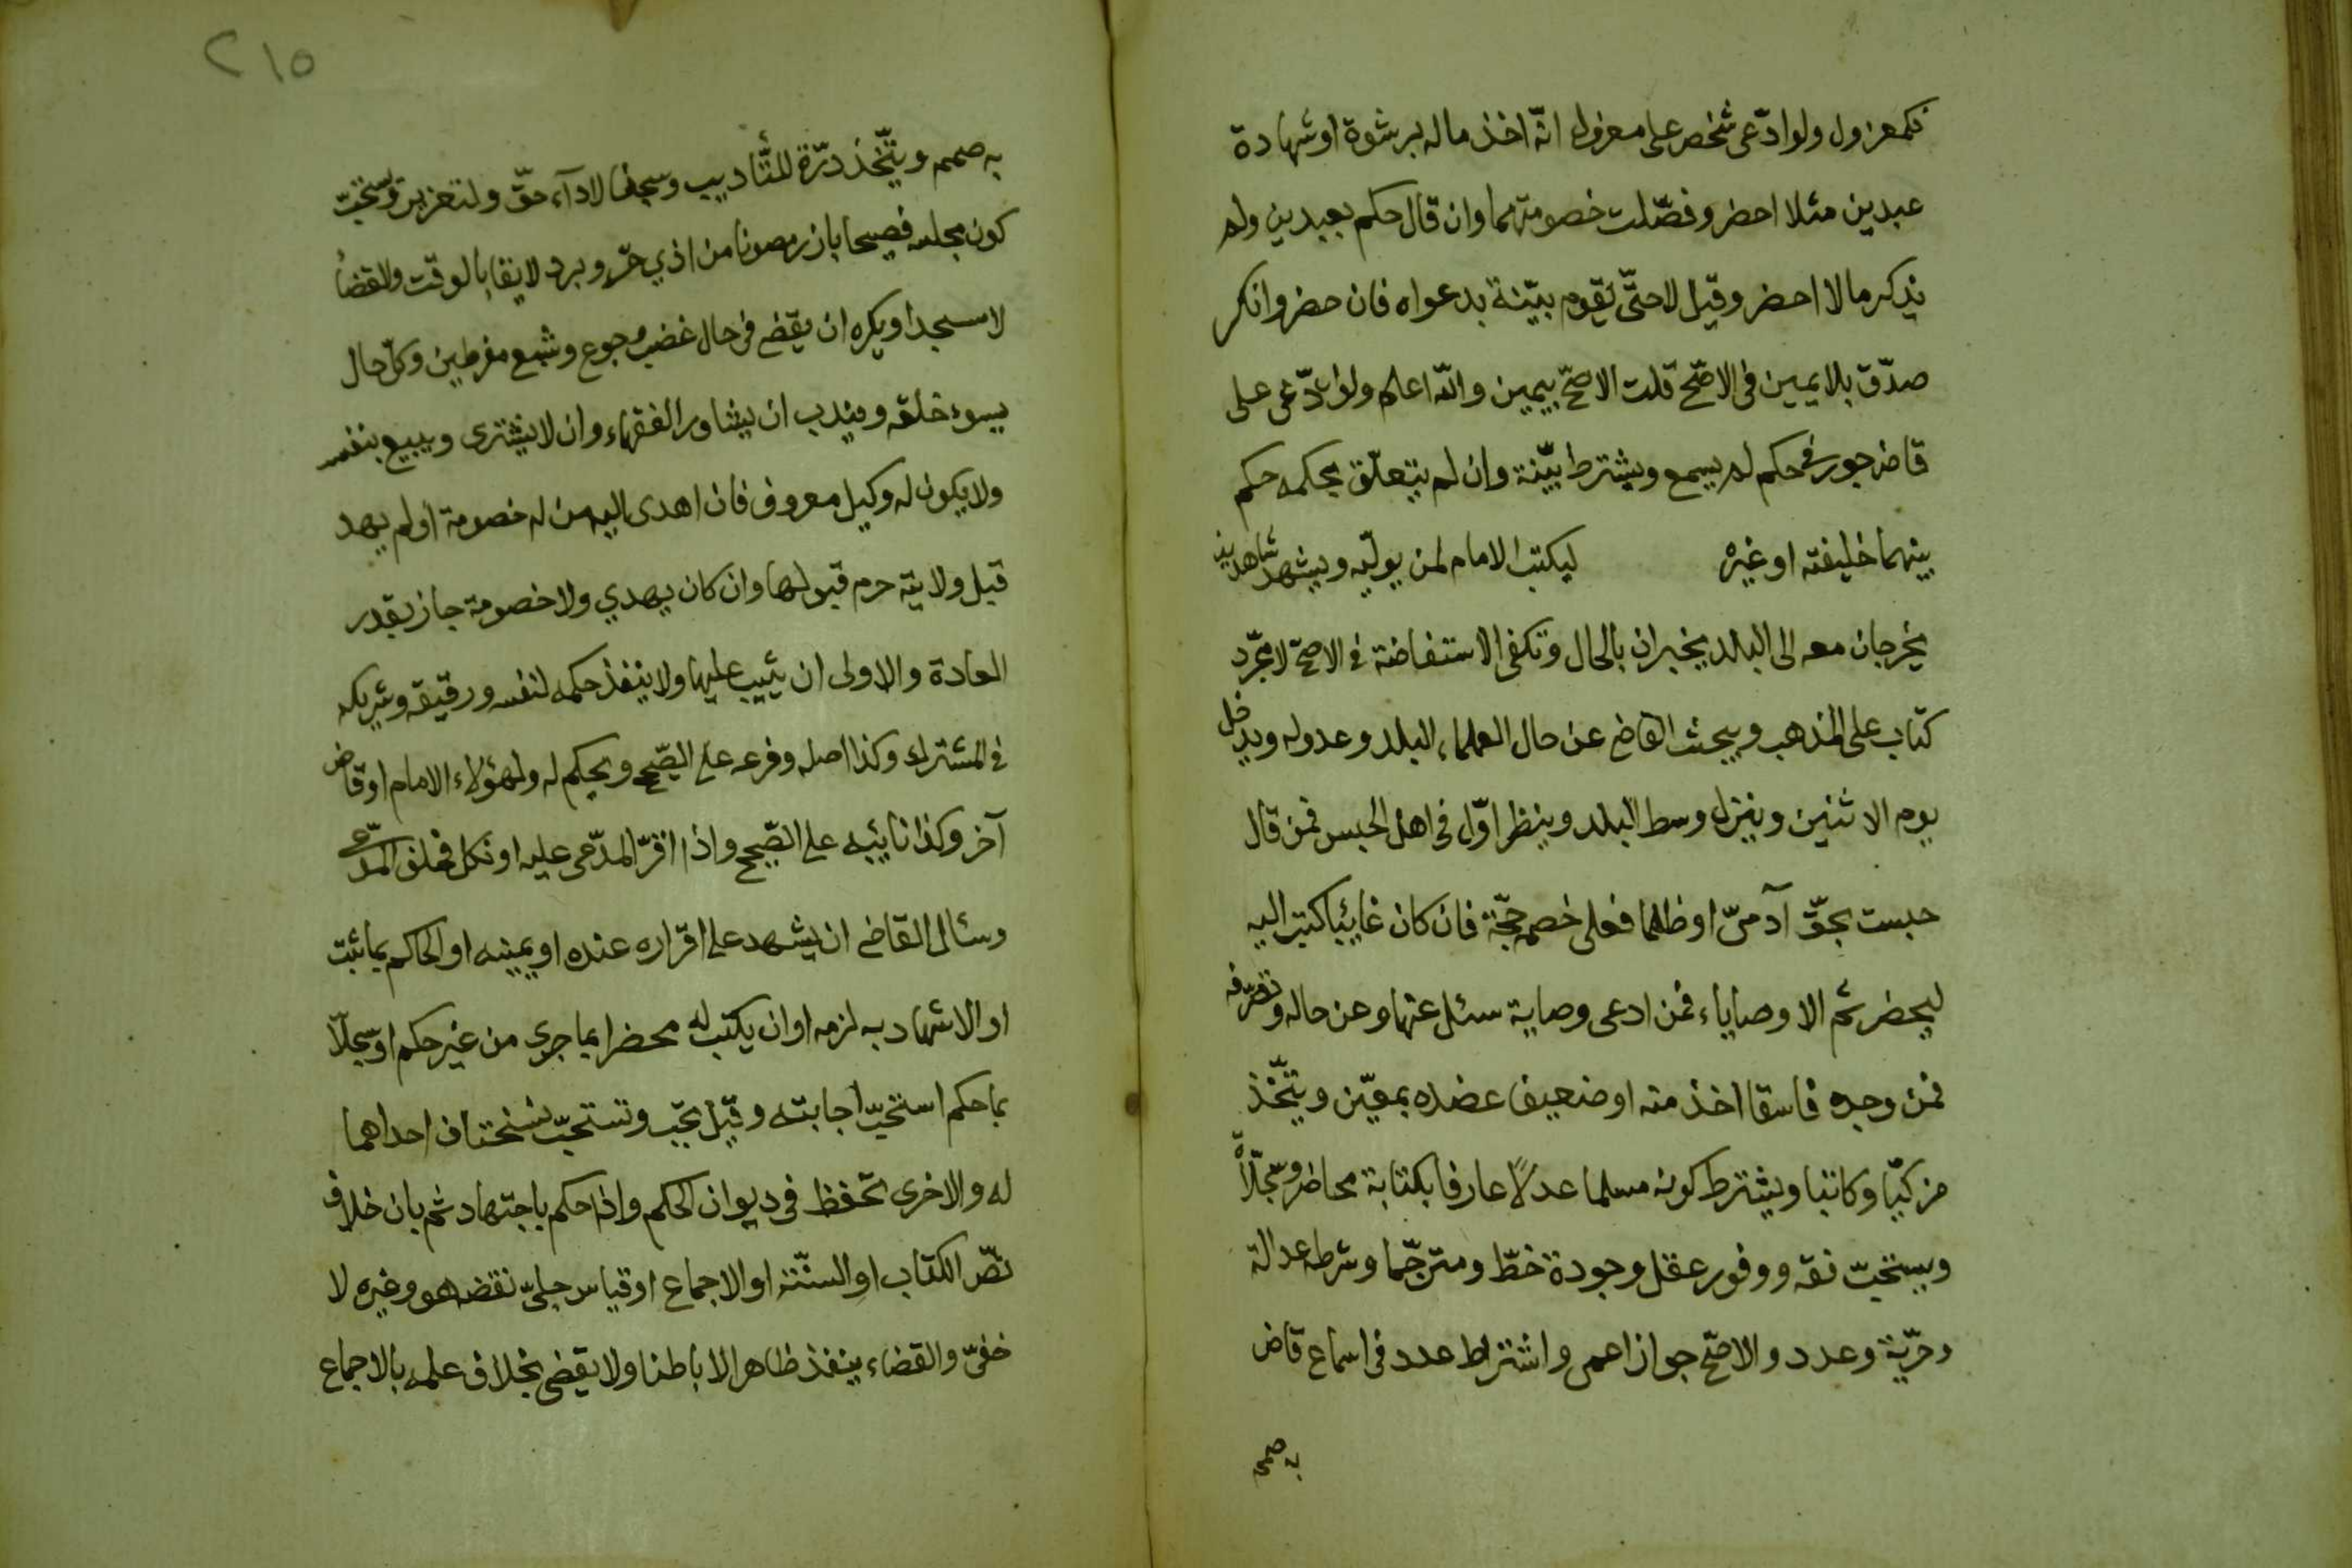 فكمعزول ولو ادّعى شخص على معزول انّه اخذ ماله برشوة او شهادة
عبدين مثلا احضر وفصّلت خصومتهما وان قال حكم بعبدين ولم
يذكر مالا احضر وقيل لا حتّى تقوم بيّنة بدعواه فان حضر وانكر
صدّق بلا يمين فى الاصّح قلت الاصحّ بيمين والله اعلم ولو ادّعى على
قاض جور فى حكم لم يسمع ويشترط بيّنة وان لم يتعلّق بحكمه حكم
بينهما خليفته او غيره ليكتب الامام لمن يولّيه ويشهد شاهدين
يخرجان معه الى البلد يخبران بالحال وتكفى الاستفاضة فى الاصحّ لا مجّرد
كتاب على المذهب ويبحث القاضى عن حال العلماء البلد وعدوله ويدخل
يوم الاثنين وينزل وسط البلد وينظر اوّلا فى اهل الحبس فمن قال
حبست بحقّ آدمىّ او ظلما فعلى خصمه حجّة فان كان غايئبا كتب اليه
ليحضر ثم الاوصاياء فمن ادعى وصاية سئل عنها وعن حاله وتصّرفه
فمن وجده فاسقا اخذ منه او ضعيفا عضده بمعيّن ويتّخذ
مزكيّا وكاتبا ويشترط كونه مسلما عدلًا عارفا بكتابة محاضر وسجّلّاً
ويستحبّ فقه ووفور عقل وجودة خطّ ومترجّما وشرطه عدالة
وحرّية وعدد والاصحّ جواز اعمى واشتراط عدد فى اسماع قاض
به صمم
٢١٥
به صمم ويتّخذ درّة للتّأديب وسجنا لادآء حقّ ولتعزير ويستحبّ
كون مجلسه فصيحا بارزا مصونا من اذي حرّ وبرد لايقا بالوقت والقضاء
لا مسجدا ويكره ان يقضى فى حال غضب وجوع وشبع مفرطين وكلّ حال
يسوء خلقه ويندب ان يشاور الفقهاء وان لا يشترى ويبيع بنفسه
ولا يكون له وكيل معروف فان اهدى اليه من له خصومة او لم يهد
قبل ولايته حرم قبولها وان كان يهدي ولا خصومة جاز بقدر
العادة والاولى ان يثيب عليها ولا ينفذ حكمه لنفسه ورقيقه وشريكه
فى المشترك وكذا اصله وفرعه على الصّحيح ويحكم له ولهؤلاء الامام او قاض
آخر وكذا نايئبه على الصّحيح واذا اقرّ المدّعى عليه او نكل فحلف المدّعى
وسئال القاضى ان يشهد على اقراره عنده او يمينه او الحاكم بما ثبت
او الاشهاد به لزمه او ان يكتب له محضرا بما جرى من غير حكم او سجلّا
بما حكم استحبّ اجابته وقيل يجب وتستحبّ نسختان احداهما
له والاخرى تحفظ فى ديوان الحكم واذا حكم باجتهاد ثم بان خلاف
نصّ الكتاب او السنّة او الاجماع او قياس جلىّ نقضه هو وغيره لا
خفىّ والقضاء ينفذ ظاهرا لا باطنا ولا يقضى بخلاف علمه بالاجماع